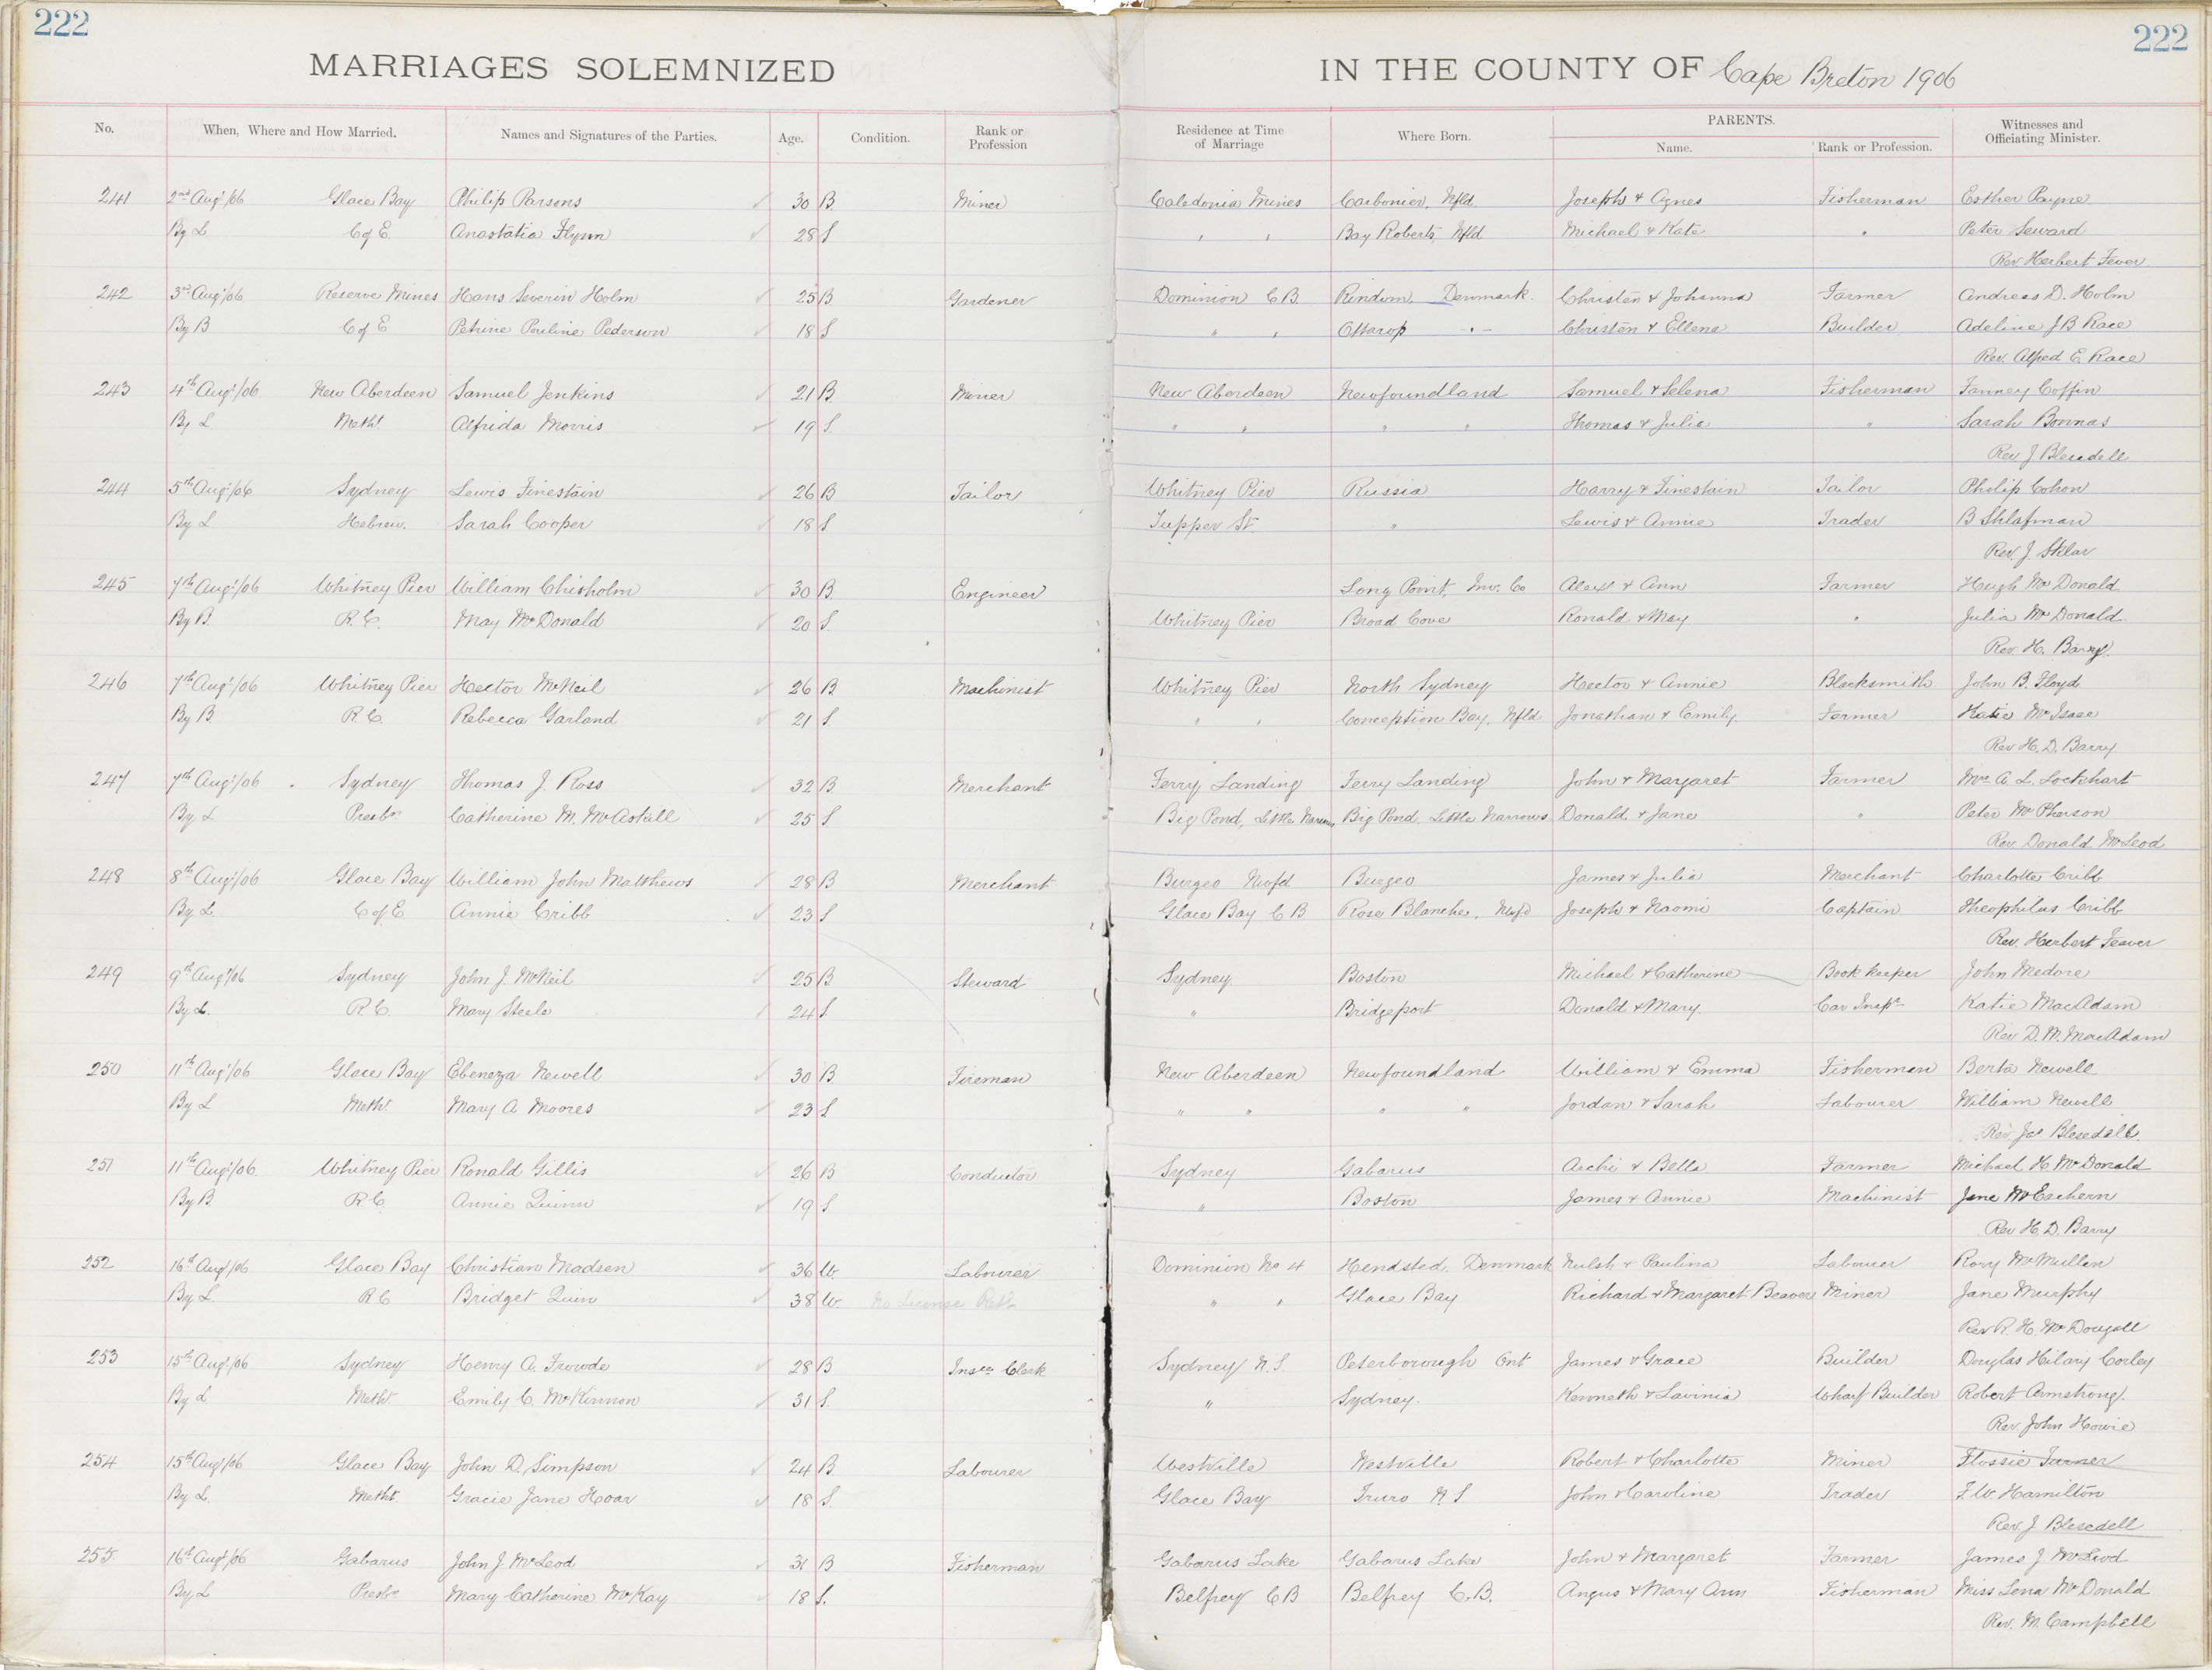 222 222
MARRIAGES SOLEMNIZED IN THE COUNTY OF Cape Breton 1906
No. When, Where and How Married. Names and Signatures of the Parties. Age. Condition. Rank or Profession Residence at Time of Marriage Where Born. PARENTS. Name. Rank or Profession. Witnesses and Officiating Minister.
241 2nd Augt/06 Glace Bay Philip Parsons 30 B. Miner Caledonia Mines Carbonier, Nfld Joseph & Agnes Fisherman Esther Payne
By L C of E Anastatia Flynn 28 S " " Bay Roberts, Nfld Michael & Kate " Peter Seward
Rev Herbert Fever
242 3rd Augt/06 Reserve Mines Hans Severin Holm 25 B Gardener Dominion C.B. Rindum, Denmark. Christen & Johanna Farmer Andreas D. Holm
By B C of E Petrine Pauline Pederson 18 S " " Ottarop " Christen & Ellena Builder Adeline J B Race
Rev. Alfred E. Race
243 4th Augt/06 New Aberdeen Samuel Jenkins 21 B Miner New Aberdeen Newfoundland Samuel & Selena Fisherman Fanney Coffin
By L Metht. Alfrida Morris 19 S. " " " " Thomas & Julia " Sarah Bonnas
Rev J Blesedell
244 5th Augt/06 Sydney Lewis Finestain 26 B Tailor Whitney Pier Russia Harry & Finestain Tailor Philip Cohon
By L Hebrew. Sarah Cooper 18 S Tupper St. " Lewis & Annie Trader B Shlafman
Rev. J. Sklar
245 7th Augt/06 Whitney Pier William Chisholm 30 B. Engineer Long Point, Inv. Co Alex & Ann Farmer Hugh McDonald
By B. R.C. May McDonald 20 S. Whitney Pier Broad Cove Ronald & May " Julia McDonald
Rev. H. Barry
246 7th Augt/06 Whitney Pier Hector McNeil 26 B. Machinist Whitney Pier North Sydney Hector & Annie Blacksmith John B. Floyd
By B R.C. Rebecca Garland 21 S " " Conception Bay, Nfld Jonathan & Emily Farmer Katie McIsaac
Rev H. D. Barry
247 7th Augt/06 Sydney Thomas J. Ross 32 B Merchant Ferry Landing Ferry Landing John & Margaret Farmer Mrs A. L. Lockhart
By L Presbn Catherine M. McAskill 25 S. Big Pond, Little Narrows Big Pond, Little Narrows Donald & Jane " Peter McPherson
Rev. Donald McLeod
248 8th Augt/06 Glace Bay William John Matthews 28 B Merchant Burgeo Newfd Burgeo James & Julia Merchant Charlotte Cribb
By L. C of E Annie Cribb 23 S Glace Bay C B Rose Blanche, Newfd Joseph & Naomi Captain Theophilus Cribb
Rev. Herbert Feaver
249 9th Augt/06 Sydney John J. McNeil 25 B Steward Sydney Boston Michael & Catherine Book keeper John Medore
By L. R.C. Mary Steele 24 S " Bridgeport Donald & Mary Car Inspr Katie MacAdam
Rev D. M. MacAdam
250 11th Augt/06 Glace Bay Ebeneza Newell 30 B. Fireman New Aberdeen Newfoundland William & Emma Fisherman Berta Newell
By L Metht Mary A Moores 23 S " " " " Jordan & Sarah Labourer William Newell
Rev. Jas Blesedell
251 11th Augt/06 Whitney Pier Ronald Gillis 26 B Conductor Sydney Gabarus Archi & Bella Farmer Michael H McDonald
By B. R.C. Annie Quinn 19 S " Boston James & Annie Machinist Jane McEachern
Rev H. D. Barry
252 16th Augt/06 Glace Bay Christian Madsen 36 W. Labourer Dominion No 4 Hendsted, Denmark Nulsh & Paulina Labourer Rory McMullen
By L. R C Bridget Quin 38 W. No License Retd " " Glace Bay Richard & Margaret Beaver Miner Jane Murphy
Rev R. H. McDougall
253 15th Augt/06 Sydney Henry A. Frowde 28 B Insce Clerk Sydney N.S. Peterborough Ont James & Grace Builder Douglas Hilary Corley
By L Metht Emily C. McKinnon 31 S. " Sydney. Kenneth & Lavinia Wharf Builder Robert Armstrong.
Rev. John Howie
254 15th Augt/06 Glace Bay John D. Simpson 24 B. Labourer Westville Westville Robert & Charlotte Miner Flossie Turner
By L. Metht Gracie Jane Hoar 18 S. Glace Bay Truro N S John & Caroline Trader F. W. Hamilton
Rev. J Blesedell
255. 16th Augt/06 Gabarus John J. McLeod 31 B Fisherman Gabarus Lake Gabarus Lake John & Margaret Farmer James J McLeod
By L Presbn Mary Catherine McKay 18 S. Belfrey C B Belfrey C.B. Angus & Mary Ann Fisherman Miss Lena McDonald
Rev. M. Campbell